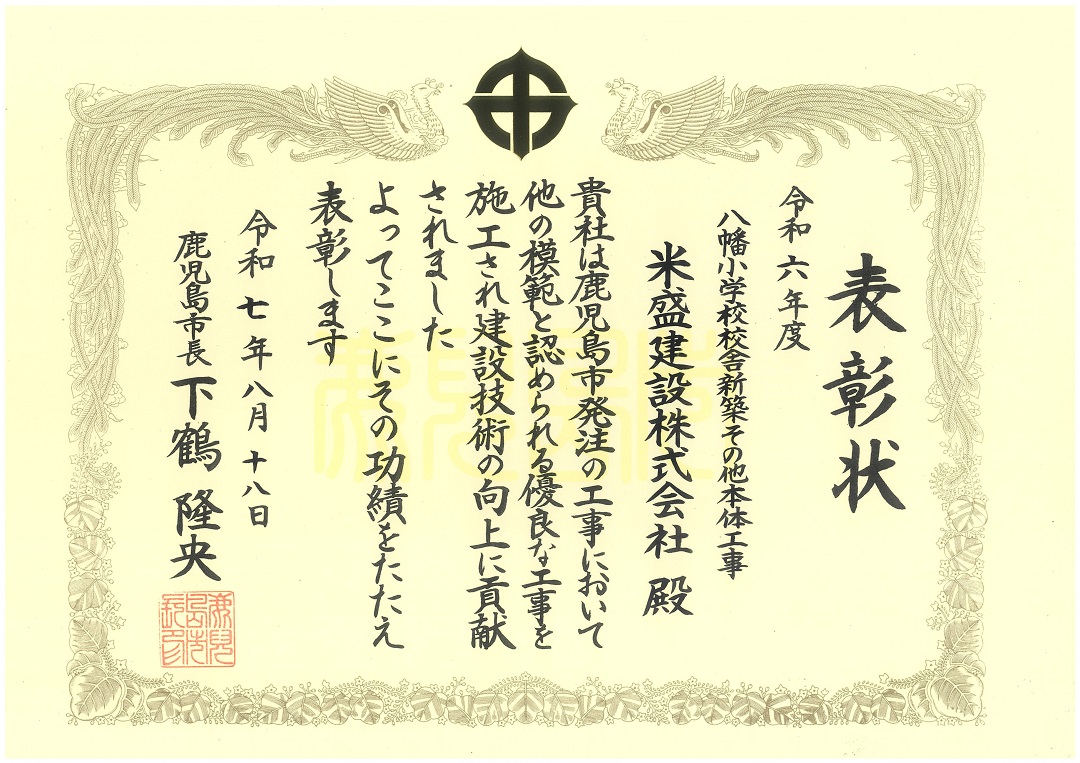 表彰状
令和六年度
八幡小学校校舎新築その他本体工事
米盛建設株式会社 殿
貴社は鹿児島市発注の工事において
他の模範と認められる優良な工事を
施工され建設技術の向上に貢献
されました
よってここにその功績をたたえ
表彰します
令和七年八月十八日
鹿児島市長 下鶴 隆央
鹿児島市長之印